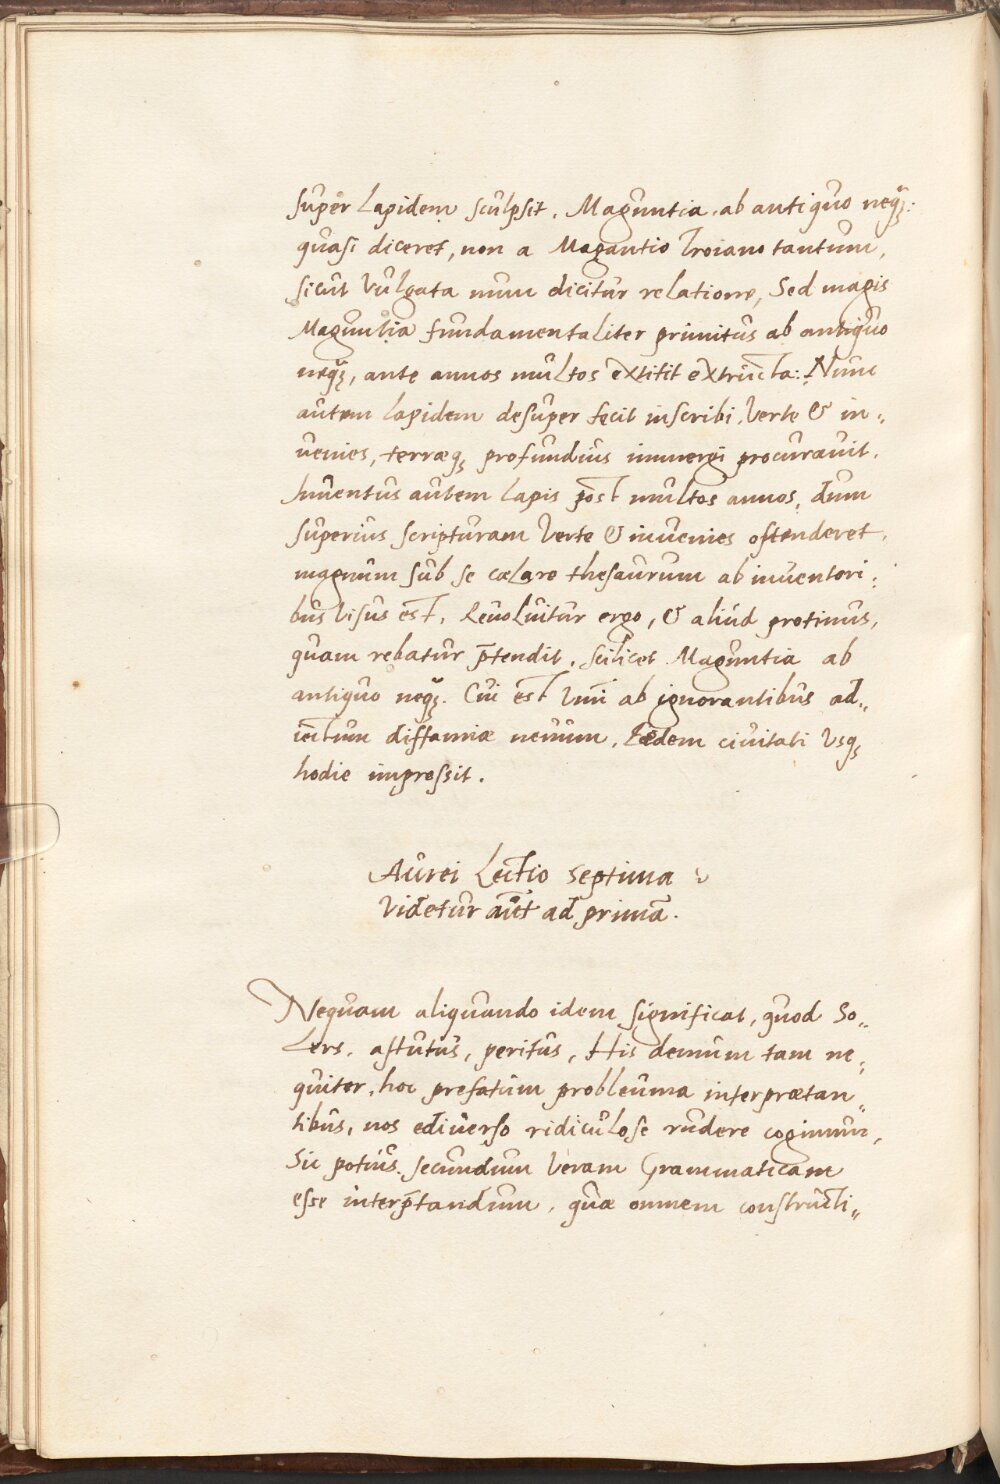 super Lapidem sculpsit. Maguntia ab antiquo neqꝫ:
quasi diceret, non a Magantio Troiano tantum,
sicut Vulgata nunc dicitur relatione, Sed magis
Maguntia fundamentaliter primitus ab antiquo
neqꝫ, ante annos multos extitit extructa: Nunc
autem lapidem desuper fecit inscribi, Verte & in„
uenies, terræqꝫ profundius immergi procurauit.
Inuentus autem lapis post multos annos, dum
superius scripturam Verte & inuenies ostenderet,
magnum sub se cælare thesaurum ab inuentori„
bus visus est. Reuoluitur ergo, & aliud protinus,
quam rebatur p̄tendit. scilicet Maguntia ab
antiquo neqꝫ. Cui est ab ignorantibus ad„
iectum diffamiæ neuum, Eædem ciuitati Vsqꝫ
hodie impressit.
Aurei Lectio septima
Videtur aut̄ ad primā.
Nequam aliquando idem significat, quod So„
Lers, astutus, peritus, His demum tam ne„
quiter, hoc prefatum probleuma interprætan„
tibus, nos ediuerso ridiculose rudere cogimur,
Sic potius secundum Veram Grammaticam
esse interp̄tandum, quæ omnem constructi„